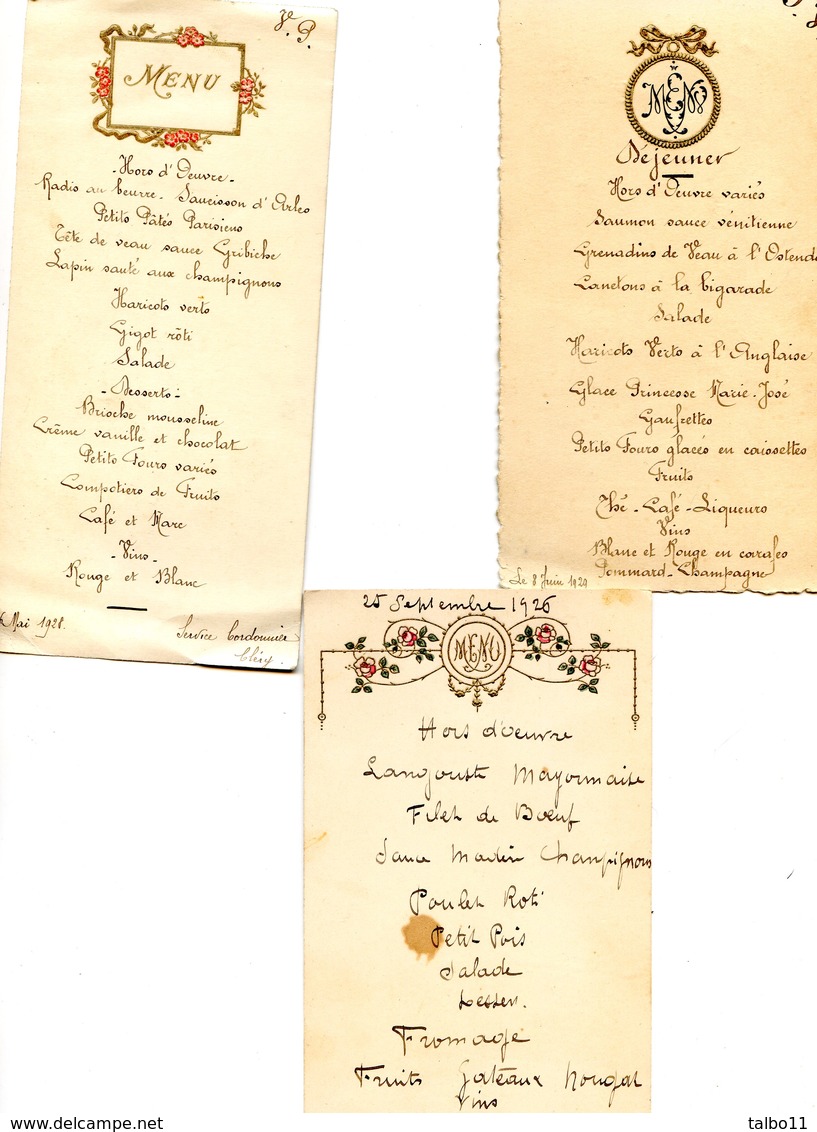 V. P.
MENU
- Hors d'Oeuvre -
Radis au beurre - Saucisson d'Arles
Petits Pâtés Parisiens
Tête de veau sauce Gribiche
Lapin sauté aux champignons
Haricots verts
Gigot rôti
Salade
- Desserts -
Brioche mousseline
Crème vanille et chocolat
Petits Fours variés
Compotiers de Fruits
Café et Marc
- Vins -
Rouge et Blanc
Mai 1928.
Service Cordonnier
Cléry.
MENU
Déjeuner
Hors d'Oeuvre variés
Saumon sauce vénitienne
Grenadins de Veau à l'Ostende
Canetons à la bigarade
Salade
Haricots Verts à l'Anglaise
Glace Princesse Marie-José
Gaufrettes
Petits Fours glacés en caissettes
Fruits
Thé - Café - Liqueurs
Vins
Blanc et Rouge en carafes
Pommard - Champagne
Le 8 Juin 1929
25 Septembre 1926
MENU
Hors d'oeuvre
Langouste Mayonnaise
Filet de Bœuf
Sauce Madère Champignons
Poulet Roti
Petit Pois
Salade
Dessert.
Fromage
Fruits Gateaux Nougat
Vins
talbo11